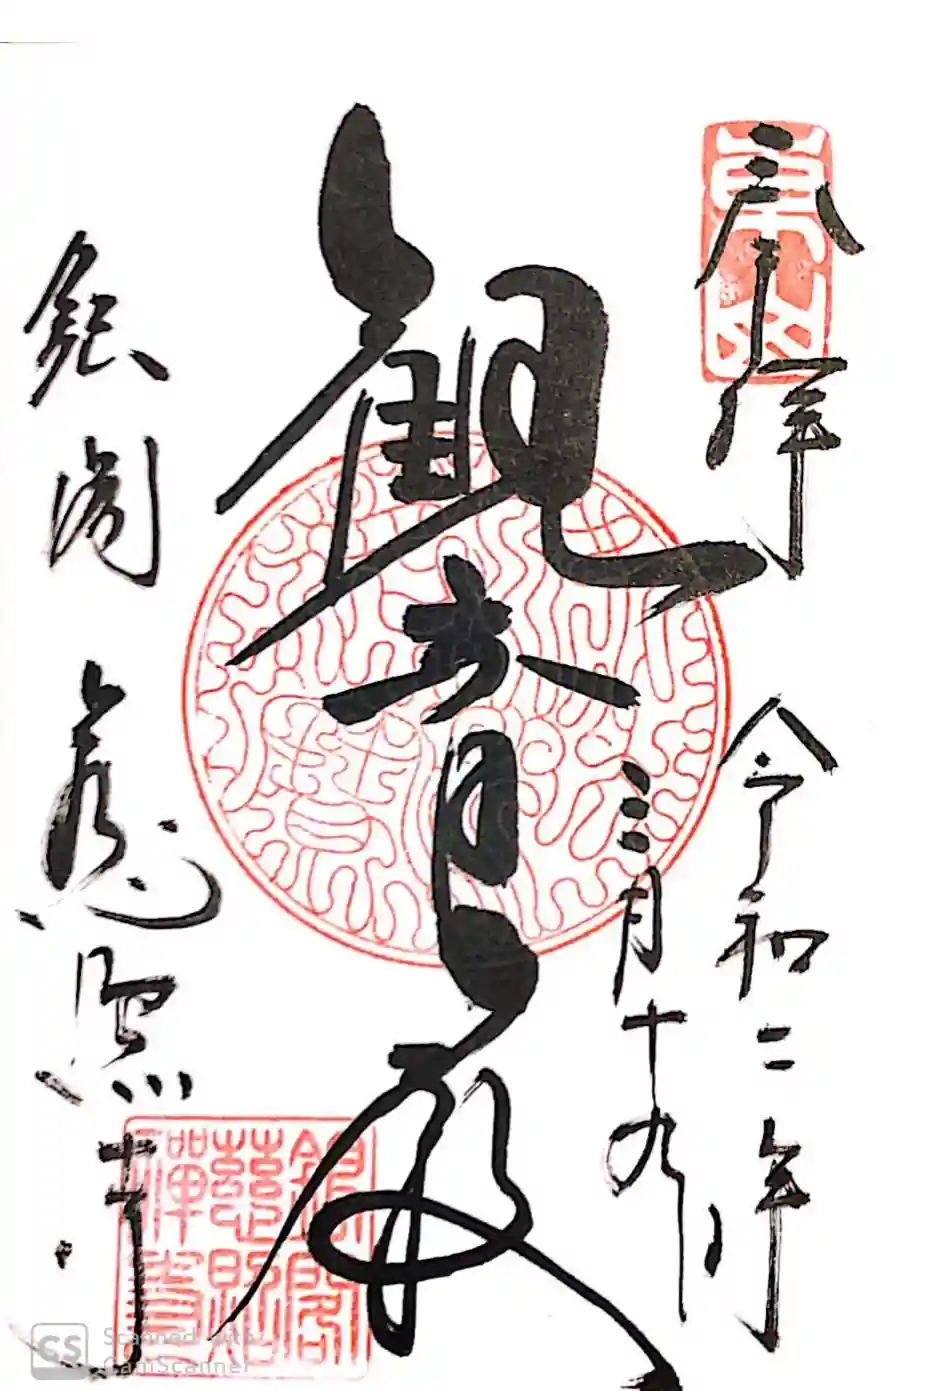 奉拝
東山
令和二年
三月十九日
観音殿
銀閣慈照寺
銀閣
慈照
禅寺
CS Scanned with
CamScanner